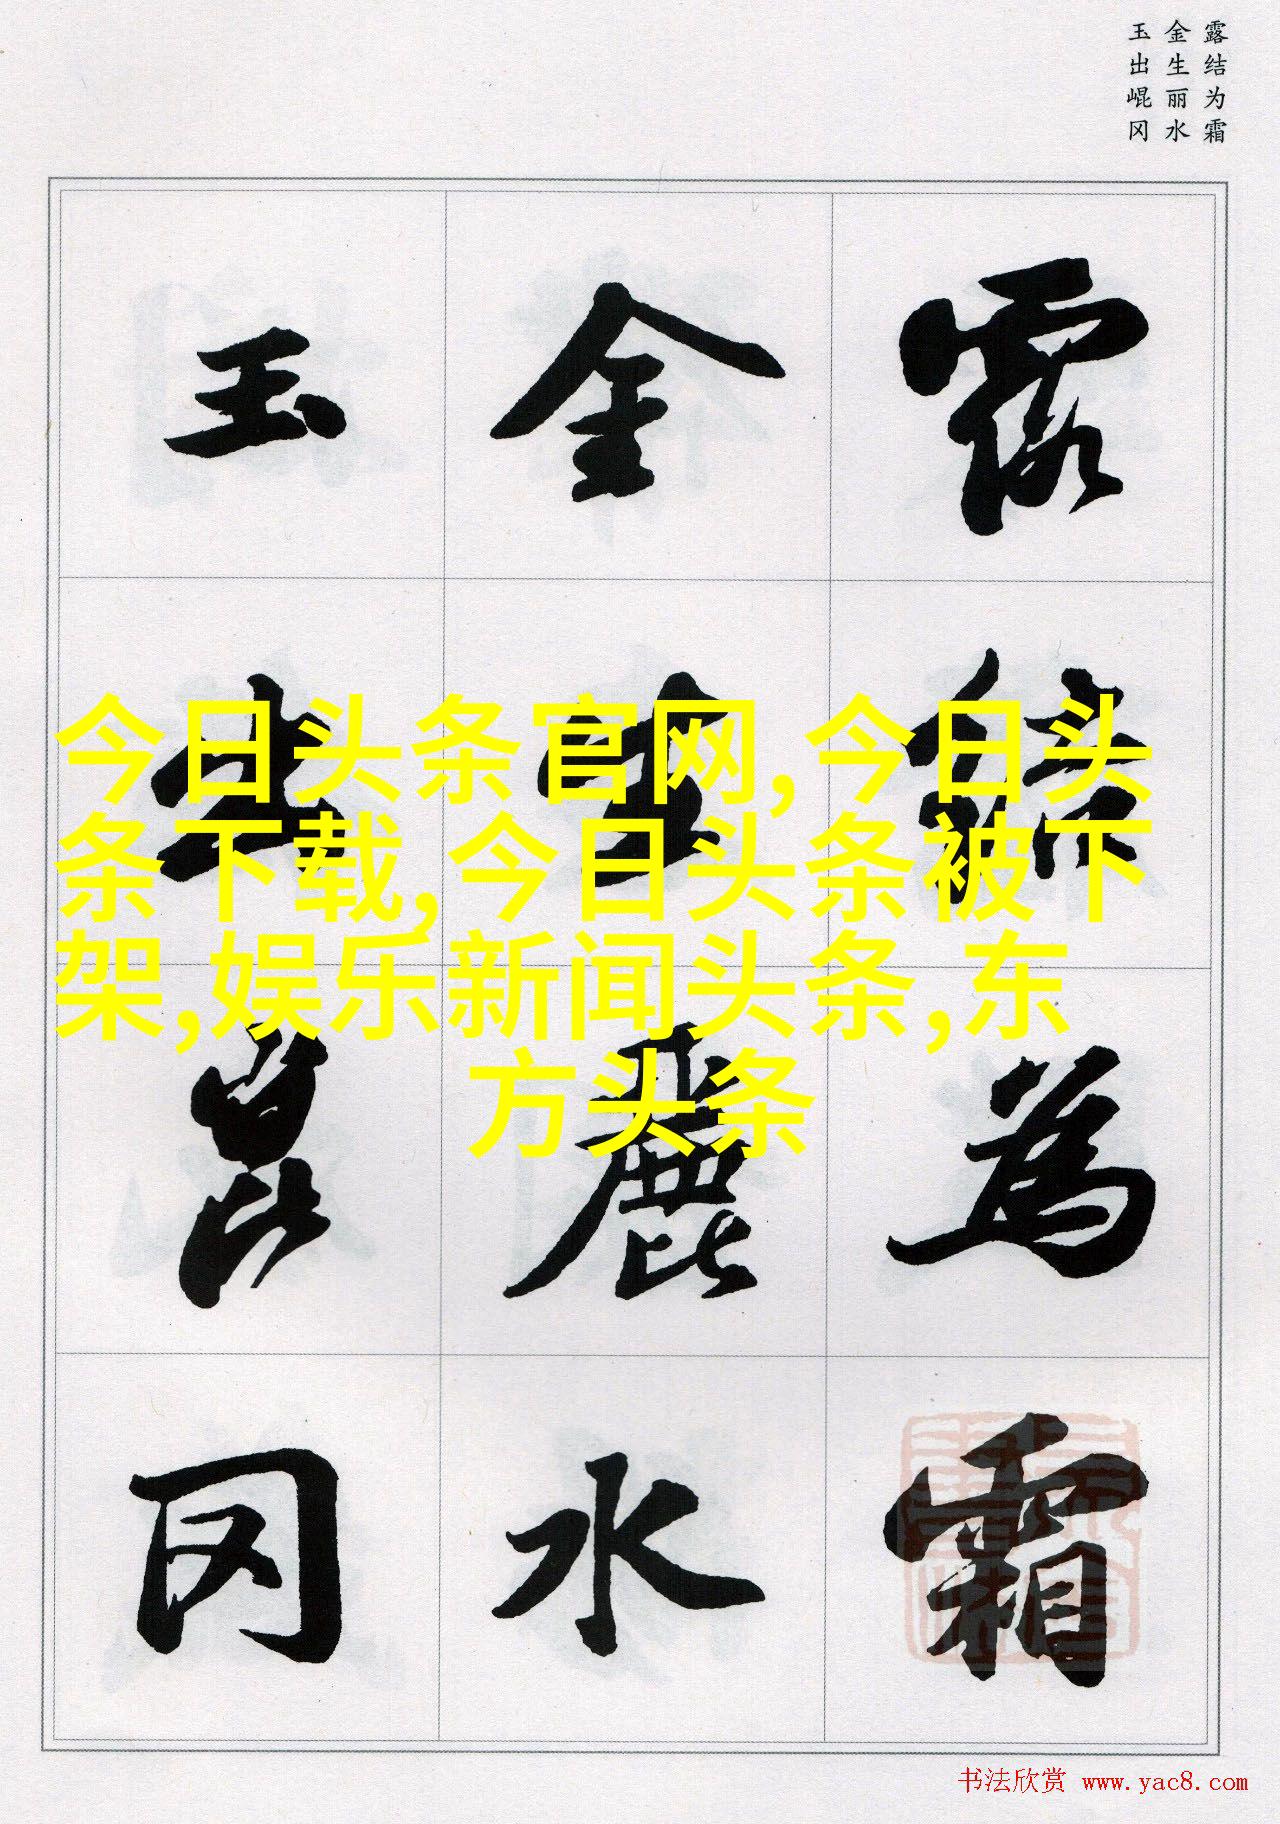 露结为霜
金生丽水
玉出崐冈
露结為霜
金生麗水
玉出崑冈
今日头条官网,今日头
条下载,今日头条被下
架,娱乐新闻头条,东
方头条
书法欣赏 www.yac8.com